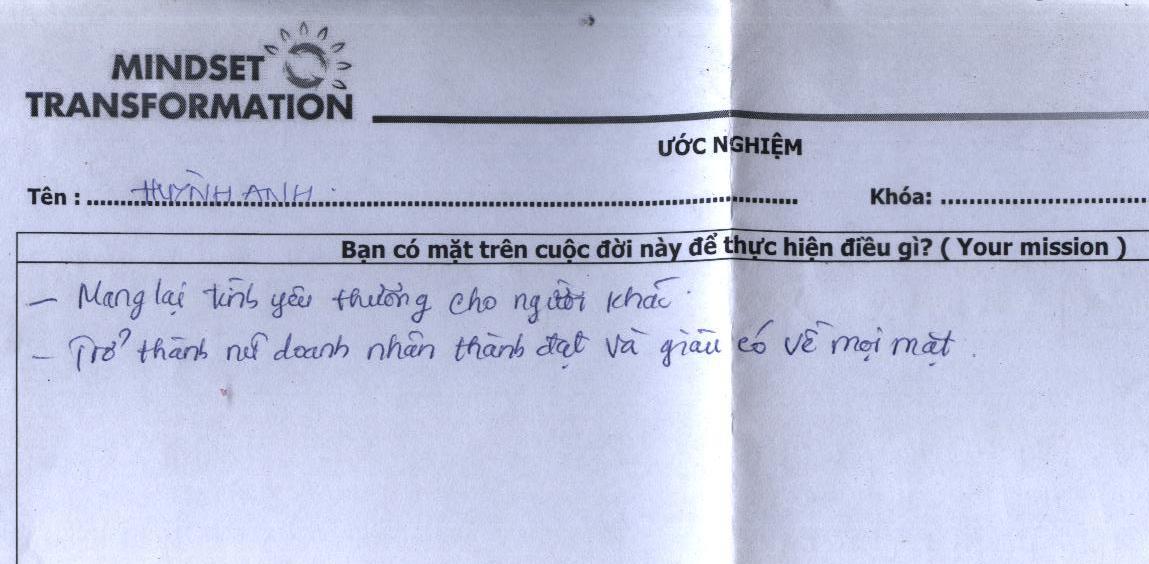 MINDSET
TRANSFORMATION
ƯỚC NGHIỆM
Tên : HUỲNH ANH. Khóa:
Bạn có mặt trên cuộc đời này để thực hiện điều gì? ( Your mission )
– Mang lại tình yêu thương cho người khác.
– Trở thành nữ doanh nhân thành đạt và giàu có về mọi mặt.